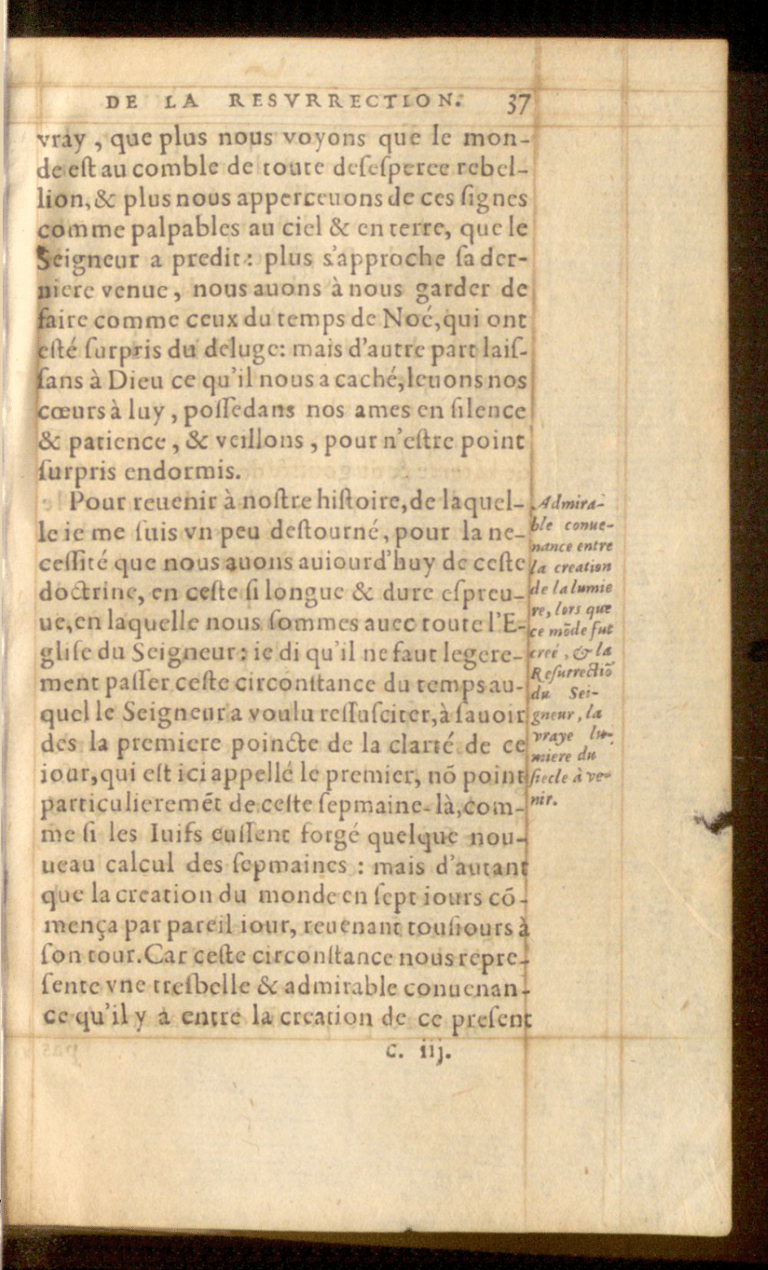 DE LA RESVRRECTION. 37
vray, que plus nous voyons que le mon-
de eſt au comble de toute deſeſperee rebel-
lion, & plus nous apperceuons de ces ſignes
comme palpables au ciel & en terre, que le
Seigneur a predit: plus s'approche ſa der-
niere venue, nous auons à nous garder de
faire comme ceux du temps de Noé, qui ont
eſté ſurpris du deluge: mais d'autre part laiſ-
ſans à Dieu ce qu'il nous a caché, leuons nos
cœurs à luy, poſſedans nos ames en ſilence
& patience, & veillons, pour n'eſtre point
ſurpris endormis.
Pour reuenir à noſtre hiſtoire, de laquel-
le ie me ſuis vn peu deſtourné, pour la ne-
ceſſité que nous auons auiourd'huy de ceſte
doctrine, en ceſte ſi longue & dure eſpreu-
ue, en laquelle nous ſommes auec toute l'E-
gliſe du Seigneur: ie di qu'il ne faut legere-
ment paſſer ceſte circonſtance du temps au-
quel le Seigneur a voulu reſſuſciter, à ſauoir
des la premiere poincte de la clarté de ce
iour, qui eſt ici appellé le premier, nō point
particulieremēt de ceſte ſepmaine-là, com-
me ſi les Iuifs euſſent forgé quelque nou-
ueau calcul des ſepmaines : mais d'autant
que la creation du monde en ſept iours cō-
mença par pareil iour, reuenant touſiours à
ſon tour. Car ceſte circonſtance nous repre-
ſente vne treſbelle & admirable conuenan-
ce qu'il y a entre la creation de ce preſent
Admira-
ble conue-
nance entre
la creation
de la lumie
re, lors que
ce mōde fut
creé, & la
Reſurrectiō
du Sei-
gneur, la
vraye lu-
miere du
ſiecle à ve-
nir.
C. iij.